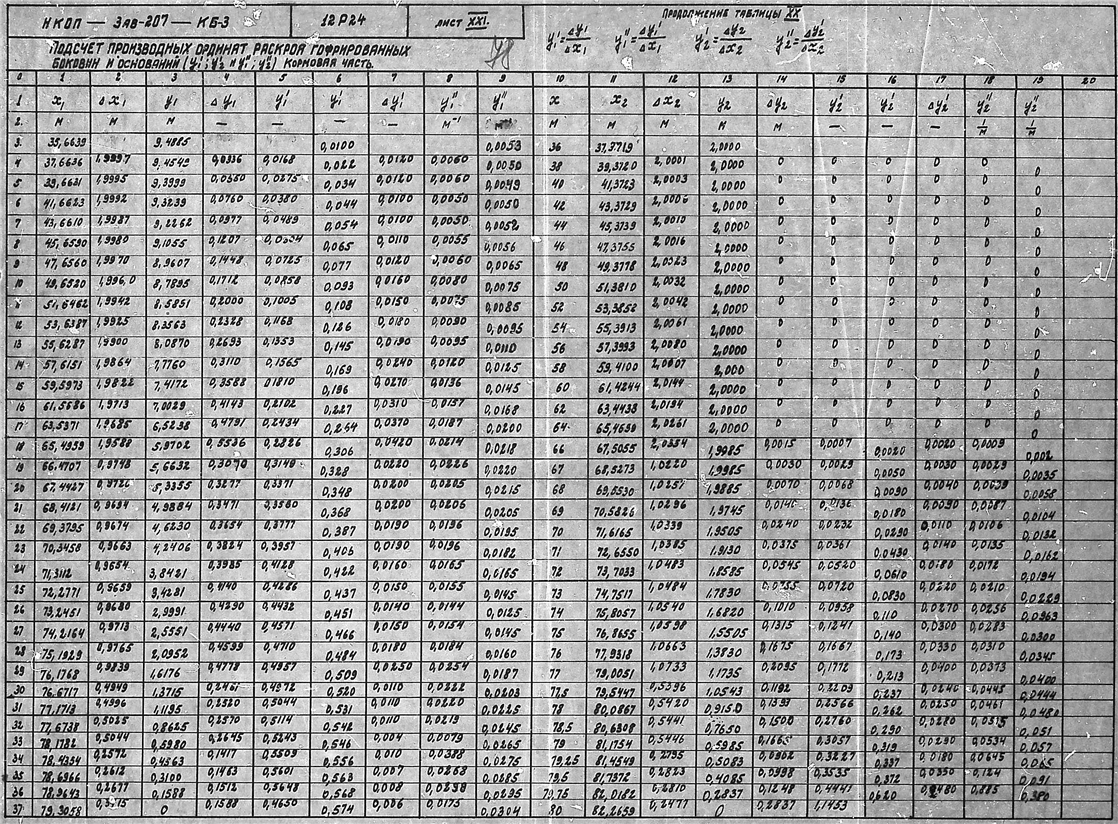 НКОП — ЗАВ-207 — КБ-3
12Р24
ЛИСТ XXI.
ПРОДОЛЖЕНИЕ ТАБЛИЦЫ XX
ПОДСЧЕТ ПРОИЗВОДНЫХ ОРДИНАТ РАСКРОЯ ГОФРИРОВАННЫХ
БОКОВИН И ОСНОВАНИЙ (y₁';y₂' и y₁";y₂") КОРМОВАЯ ЧАСТЬ.
y₁'=Δy₁/Δx₁ y₁"=Δy₁'/Δx₁ y₂'=Δy₂/Δx₂ y₂"=Δy₂'/Δx₂
0 1 2 3 4 5 6 7 8 9 10 11 12 13 14 15 16 17 18 19 20
1 x₁ Δx₁ y₁ Δy₁ y₁' y₁' Δy₁' y₁" y₁" x x₂ Δx₂ y₂ Δy₂ y₂' y₂' Δy₂' y₂" y₂"
2. м м м — — — — м⁻¹ м м м м м — — — 1/м 1/м
3. 35,6639 9,4885 0,0100 0,0053 36 37,3719 2,0000
4 37,6636 1,9997 9,4549 0,0336 0,0168 0,022 0,0120 0,0060 0,0050 38 39,3720 2,0001 2,0000 0 0 0 0 0 0
5 39,6631 1,9995 9,3999 0,0550 0,0275 0,034 0,0120 0,0060 0,0049 40 41,3723 2,0003 2,0000 0 0 0 0 0 0
6 41,6623 1,9992 9,3239 0,0760 0,0380 0,044 0,0100 0,0050 0,0050 42 43,3729 2,0006 2,0000 0 0 0 0 0 0
7 43,6610 1,9987 9,2262 0,0977 0,0489 0,054 0,0100 0,0050 0,0052 44 45,3739 2,0010 2,0000 0 0 0 0 0 0
8 45,6590 1,9980 9,1055 0,1207 0,0604 0,065 0,0110 0,0055 0,0056 46 47,3755 2,0016 2,0000 0 0 0 0 0 0
9 47,6560 1,9970 8,9607 0,1448 0,0725 0,077 0,0120 0,0060 0,0065 48 49,3778 2,0023 2,0000 0 0 0 0 0 0
10 49,6520 1,9960 8,7895 0,1712 0,0858 0,093 0,0160 0,0080 0,0075 50 51,3810 2,0032 2,0000 0 0 0 0 0 0
51,6462 1,9942 8,5851 0,2000 0,1005 0,108 0,0150 0,0075 0,0085 52 53,3852 2,0042 2,0000 0 0 0 0 0 0
12 53,6387 1,9925 8,3563 0,2328 0,1168 0,126 0,0180 0,0090 0,0095 54 55,3913 2,0061 2,0000 0 0 0 0 0 0
13 55,6287 1,9900 8,0870 0,2693 0,1353 0,145 0,0190 0,0095 0,0110 56 57,3993 2,0080 2,0000 0 0 0 0 0 0
14 57,6151 1,9864 7,7760 0,3110 0,1565 0,169 0,0240 0,0120 0,0125 58 59,4100 2,0007 2,000 0 0 0 0 0 0
15 59,5973 1,9822 7,4172 0,3588 0,1810 0,196 0,0270 0,0136 0,0145 60 61,4244 2,0144 2,0000 0 0 0 0 0 0
16 61,5686 1,9713 7,0029 0,4143 0,2102 0,227 0,0310 0,0157 0,0168 62 63,4438 2,0194 2,0000 0 0 0 0 0 0
17 63,5371 1,9685 6,5238 0,4791 0,2434 0,264 0,0370 0,0187 0,0200 64 65,4690 2,0261 2,0000 0 0 0 0 0 0
18 65,4959 1,9588 5,9702 0,5536 0,2826 0,306 0,0420 0,0214 0,0218 66 67,5055 2,0354 1,9985 0,0015 0,0007 0,0020 0,0020 0,0009 0,002
19 66,4707 0,9748 5,6632 0,3070 0,3148 0,328 0,0220 0,0226 0,0220 67 68,5273 1,0220 1,9985 0,0030 0,0029 0,0050 0,0030 0,0029 0,0035
20 67,4427 0,9720 5,3355 0,3277 0,3371 0,348 0,0200 0,0205 0,0215 68 69,5530 1,0257 1,9885 0,0070 0,0068 0,0090 0,0040 0,0039 0,0058
21 68,4121 0,9694 4,9884 0,3471 0,3580 0,368 0,0200 0,0206 0,0205 69 70,5826 1,0296 1,9745 0,0140 0,0136 0,0180 0,0090 0,0087 0,0104
22 69,3795 0,9674 4,6230 0,3654 0,3777 0,387 0,0190 0,0196 0,0195 70 71,6165 1,0339 1,9505 0,0240 0,0232 0,0290 0,0110 0,0106 0,0132
23 70,3458 0,9663 4,2406 0,3824 0,3957 0,406 0,0190 0,0196 0,0182 71 72,6550 1,0385 1,9130 0,0375 0,0361 0,0430 0,0140 0,0135 0,0162
24 71,3112 0,9654 3,8421 0,3985 0,4128 0,422 0,0160 0,0165 0,0165 72 73,7033 1,0483 1,8585 0,0545 0,0520 0,0610 0,0180 0,0172 0,0194
25 72,2771 0,9659 3,4281 0,4140 0,4286 0,437 0,0150 0,0155 0,0145 73 74,7517 1,0484 1,7830 0,0755 0,0720 0,0830 0,0220 0,0210 0,0229
26 73,2451 0,9680 2,9991 0,4290 0,4432 0,451 0,0140 0,0144 0,0125 74 75,8057 1,0540 1,6820 0,1010 0,0958 0,110 0,0270 0,0256 0,0363
27 74,2164 0,9713 2,5551 0,4440 0,4571 0,466 0,0150 0,0154 0,0145 75 76,8655 1,0598 1,5505 0,1315 0,1241 0,140 0,0300 0,0283 0,0300
28 75,1929 0,9765 2,0952 0,4599 0,4710 0,484 0,0180 0,0184 0,0160 76 77,9318 1,0663 1,3830 0,1675 0,1667 0,173 0,0330 0,0310 0,0345
29 76,1768 0,9839 1,6176 0,4778 0,4957 0,509 0,0250 0,0254 0,0187 77 79,0051 1,0733 1,1735 0,2095 0,1772 0,213 0,0400 0,0373 0,0400
30 76,6717 0,4949 1,3715 0,2461 0,4972 0,520 0,0110 0,0222 0,0203 77,5 79,5447 0,5396 1,0543 0,1192 0,2209 0,237 0,0240 0,0445 0,0444
31 77,1713 0,4996 1,1195 0,2520 0,5044 0,531 0,0110 0,0220 0,0225 78 80,0867 0,5420 0,9150 0,1393 0,2566 0,262 0,0250 0,0461 0,0480
32 77,6738 0,5025 0,8625 0,2570 0,5114 0,542 0,0110 0,0219 0,0245 78,5 80,6308 0,5441 0,7650 0,1500 0,2760 0,290 0,0280 0,0515 0,051
33 78,1782 0,5044 0,5980 0,2645 0,5243 0,546 0,004 0,0079 0,0265 79 81,1754 0,5446 0,5985 0,1665 0,3057 0,319 0,0290 0,0534 0,057
34 78,4354 0,2572 0,4563 0,1417 0,5509 0,556 0,010 0,0388 0,0275 79,25 81,4549 0,2795 0,5083 0,0902 0,3227 0,337 0,0180 0,0645 0,065
35 78,6966 0,2612 0,3100 0,1463 0,5601 0,563 0,007 0,0268 0,0285 79,5 81,7372 0,2823 0,4085 0,0998 0,3535 0,372 0,0350 0,124 0,091
36 78,9643 0,2677 0,1588 0,1512 0,5648 0,568 0,008 0,0298 0,0295 79,75 82,0182 0,2810 0,2837 0,1248 0,4441 0,620 0,2480 0,885 0,380
37 79,3058 0,3415 0 0,1588 0,4650 0,574 0,006 0,0175 0,0304 80 82,2659 0,2477 0 0,2837 1,1453